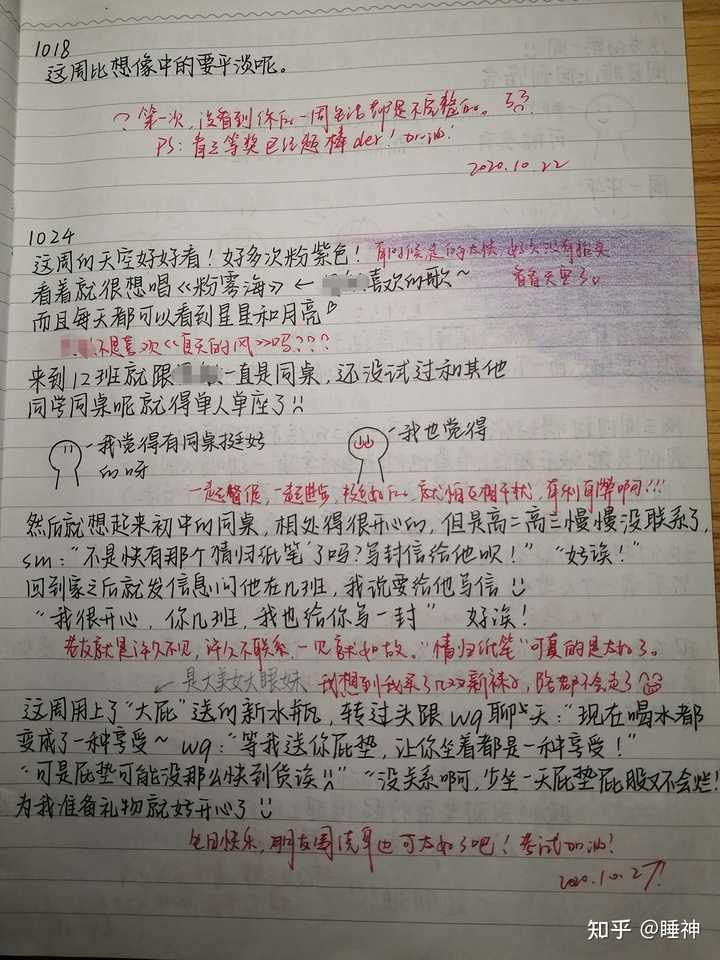 1018
这周比想像中的要平淡呢。
第一次,没看到你的一周生活都是不完整的。
PS:看三等奖已经超棒der!加油!
2020.10.22
1024
这周的天空好好看!好多次粉紫色! 有时候走的太快,好久没有抬头
看着就很想唱《粉雾海》← 喜欢的歌~ 看看天空了。
而且每天都可以看到星星和月亮
不是喜欢《夏天的风》吗???
来到12班就跟 一直是同桌,还没试过和其他
同学同桌呢就得单人单座了
-我觉得有同桌挺好 -我也觉得
的呀
一起督促,一起进步,挺好的,就怕互相干扰,有利有弊啊!!!
然后就想起来初中的同桌,相处得很开心的,但是高二高三慢慢没联系了,
sm:“不是快有那个情归纸笔了吗?写封信给他呗!” “好诶!”
回到家之后就发信息问他在几班,我说要给他写信
“我很开心,你几班,我也给你写一封” 好诶!
老友就是许久不见,许久不联系,一见就如故。“情归纸笔”可真的是太好了。
← 是大美女大眼妹 我想到我买了几双新袜子,路都不会走了
这周用上了“大屁”送的新水瓶,转过头跟wq聊天:“现在喝水都
变成了一种享受~ wq:“等我送你屁垫,让你坐着都是一种享受!”
“可是屁垫可能没那么快到货诶” “没关系啊,少坐一天屁垫屁股又不会烂!
为我准备礼物就好开心了
生日快乐,朋友圈 也可太好了吧!考试加油!
2020.10.27
知乎 @睡神